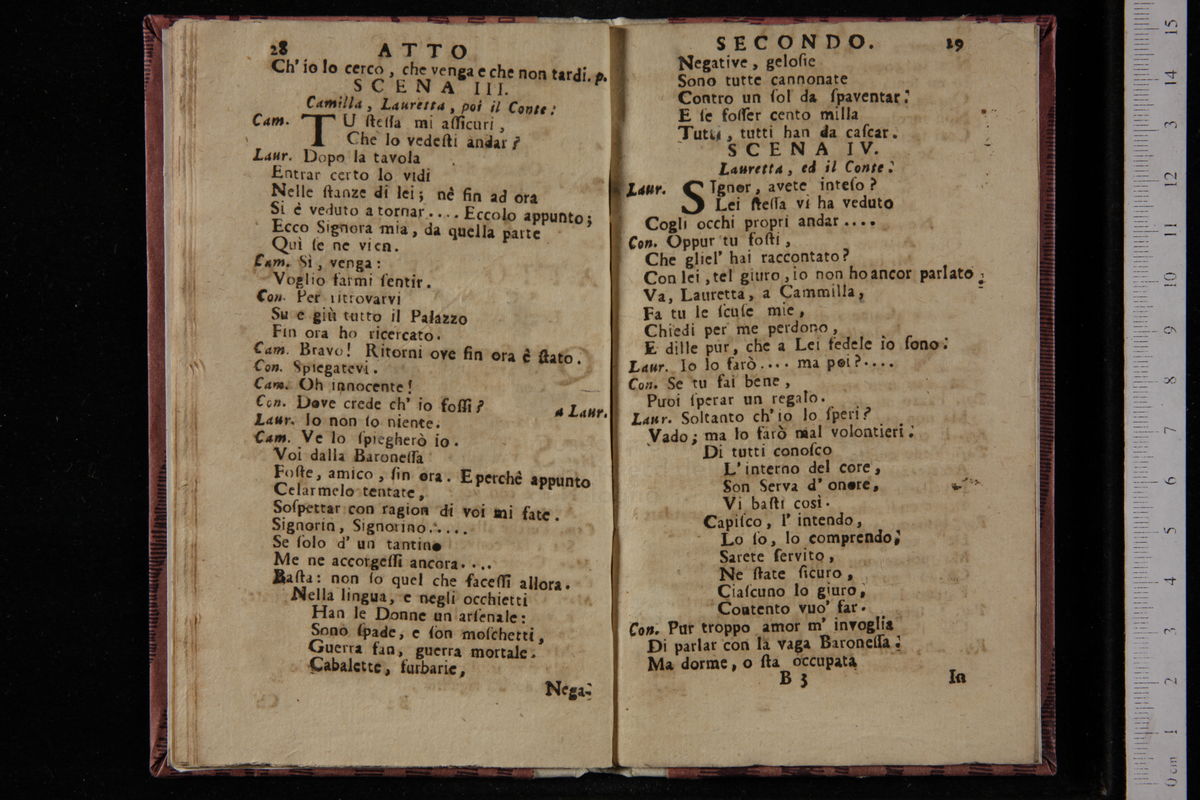 28 ATTO
Ch' io lo cerco, che venga e che non tardi. p.
SCENA III.
Camilla, Lauretta, poi il Conte:
Cam. TU ſteſſa mi aſſicuri,
Che lo vedeſti andar?
Laur. Dopo la tavola
Entrar certo lo vidi
Nelle ſtanze di lei; nè fin ad ora
Si è veduto a tornar.... Eccolo appunto;
Ecco Signora mia, da quella parte
Quì ſe ne vien.
Cam. Sì, venga:
Voglio farmi ſentir.
Con. Per ritrovarvi
Su e giù tutto il Palazzo
Fin ora ho ricercato.
Cam. Bravo! Ritorni ove fin ora è ſtato.
Con. Spiegatevi.
Cam. Oh innocente!
Con. Dove crede ch' io foſſi? a Laur.
Laur. Io non ſo niente.
Cam. Ve lo ſpiegherò io.
Voi dalla Baroneſſa
Foſte, amico, fin ora. E perchè appunto
Celarmelo tentate,
Soſpettar con ragion di voi mi fate.
Signorin, Signorino.....
Se ſolo d' un tantino
Me ne accorgeſſi ancora....
Baſta: non ſo quel che faceſſi allora.
Nella lingua, e negli occhietti
Han le Donne un arſenale:
Sono ſpade, e ſon moſchetti,
Guerra fan, guerra mortale.
Cabalette, furbarie,
Nega-
SECONDO. 29
Negative, geloſie
Sono tutte cannonate
Contro un ſol da ſpaventar:
E ſe foſſer cento milla
Tutti, tutti han da caſcar.
SCENA IV.
Lauretta, ed il Conte:
Laur. SIgnor, avete inteſo?
Lei ſteſſa vi ha veduto
Cogli occhi propri andar....
Con. Oppur tu foſti,
Che gliel' hai raccontato?
Con lei, tel giuro, io non ho ancor parlato;
Va, Lauretta, a Cammilla,
Fa tu le ſcuſe mie,
Chiedi per me perdono,
E dille pur, che a Lei fedele io ſono:
Laur. Io lo farò.... ma poi?....
Con. Se tu fai bene,
Puoi ſperar un regalo.
Laur. Soltanto ch' io lo ſperi?
Vado; ma lo farò mal volontieri:
Di tutti conoſco
L' interno del core,
Son Serva d' onore,
Vi baſti così.
Capiſco, l' intendo,
Lo ſo, lo comprendo;
Sarete ſervito,
Ne ſtate ſicuro,
Ciaſcuno lo giuro,
Contento vuo' far.
Con. Pur troppo amor m' invoglia
Di parlar con la vaga Baroneſſa:
Ma dorme, o ſta occupata
B 3 In